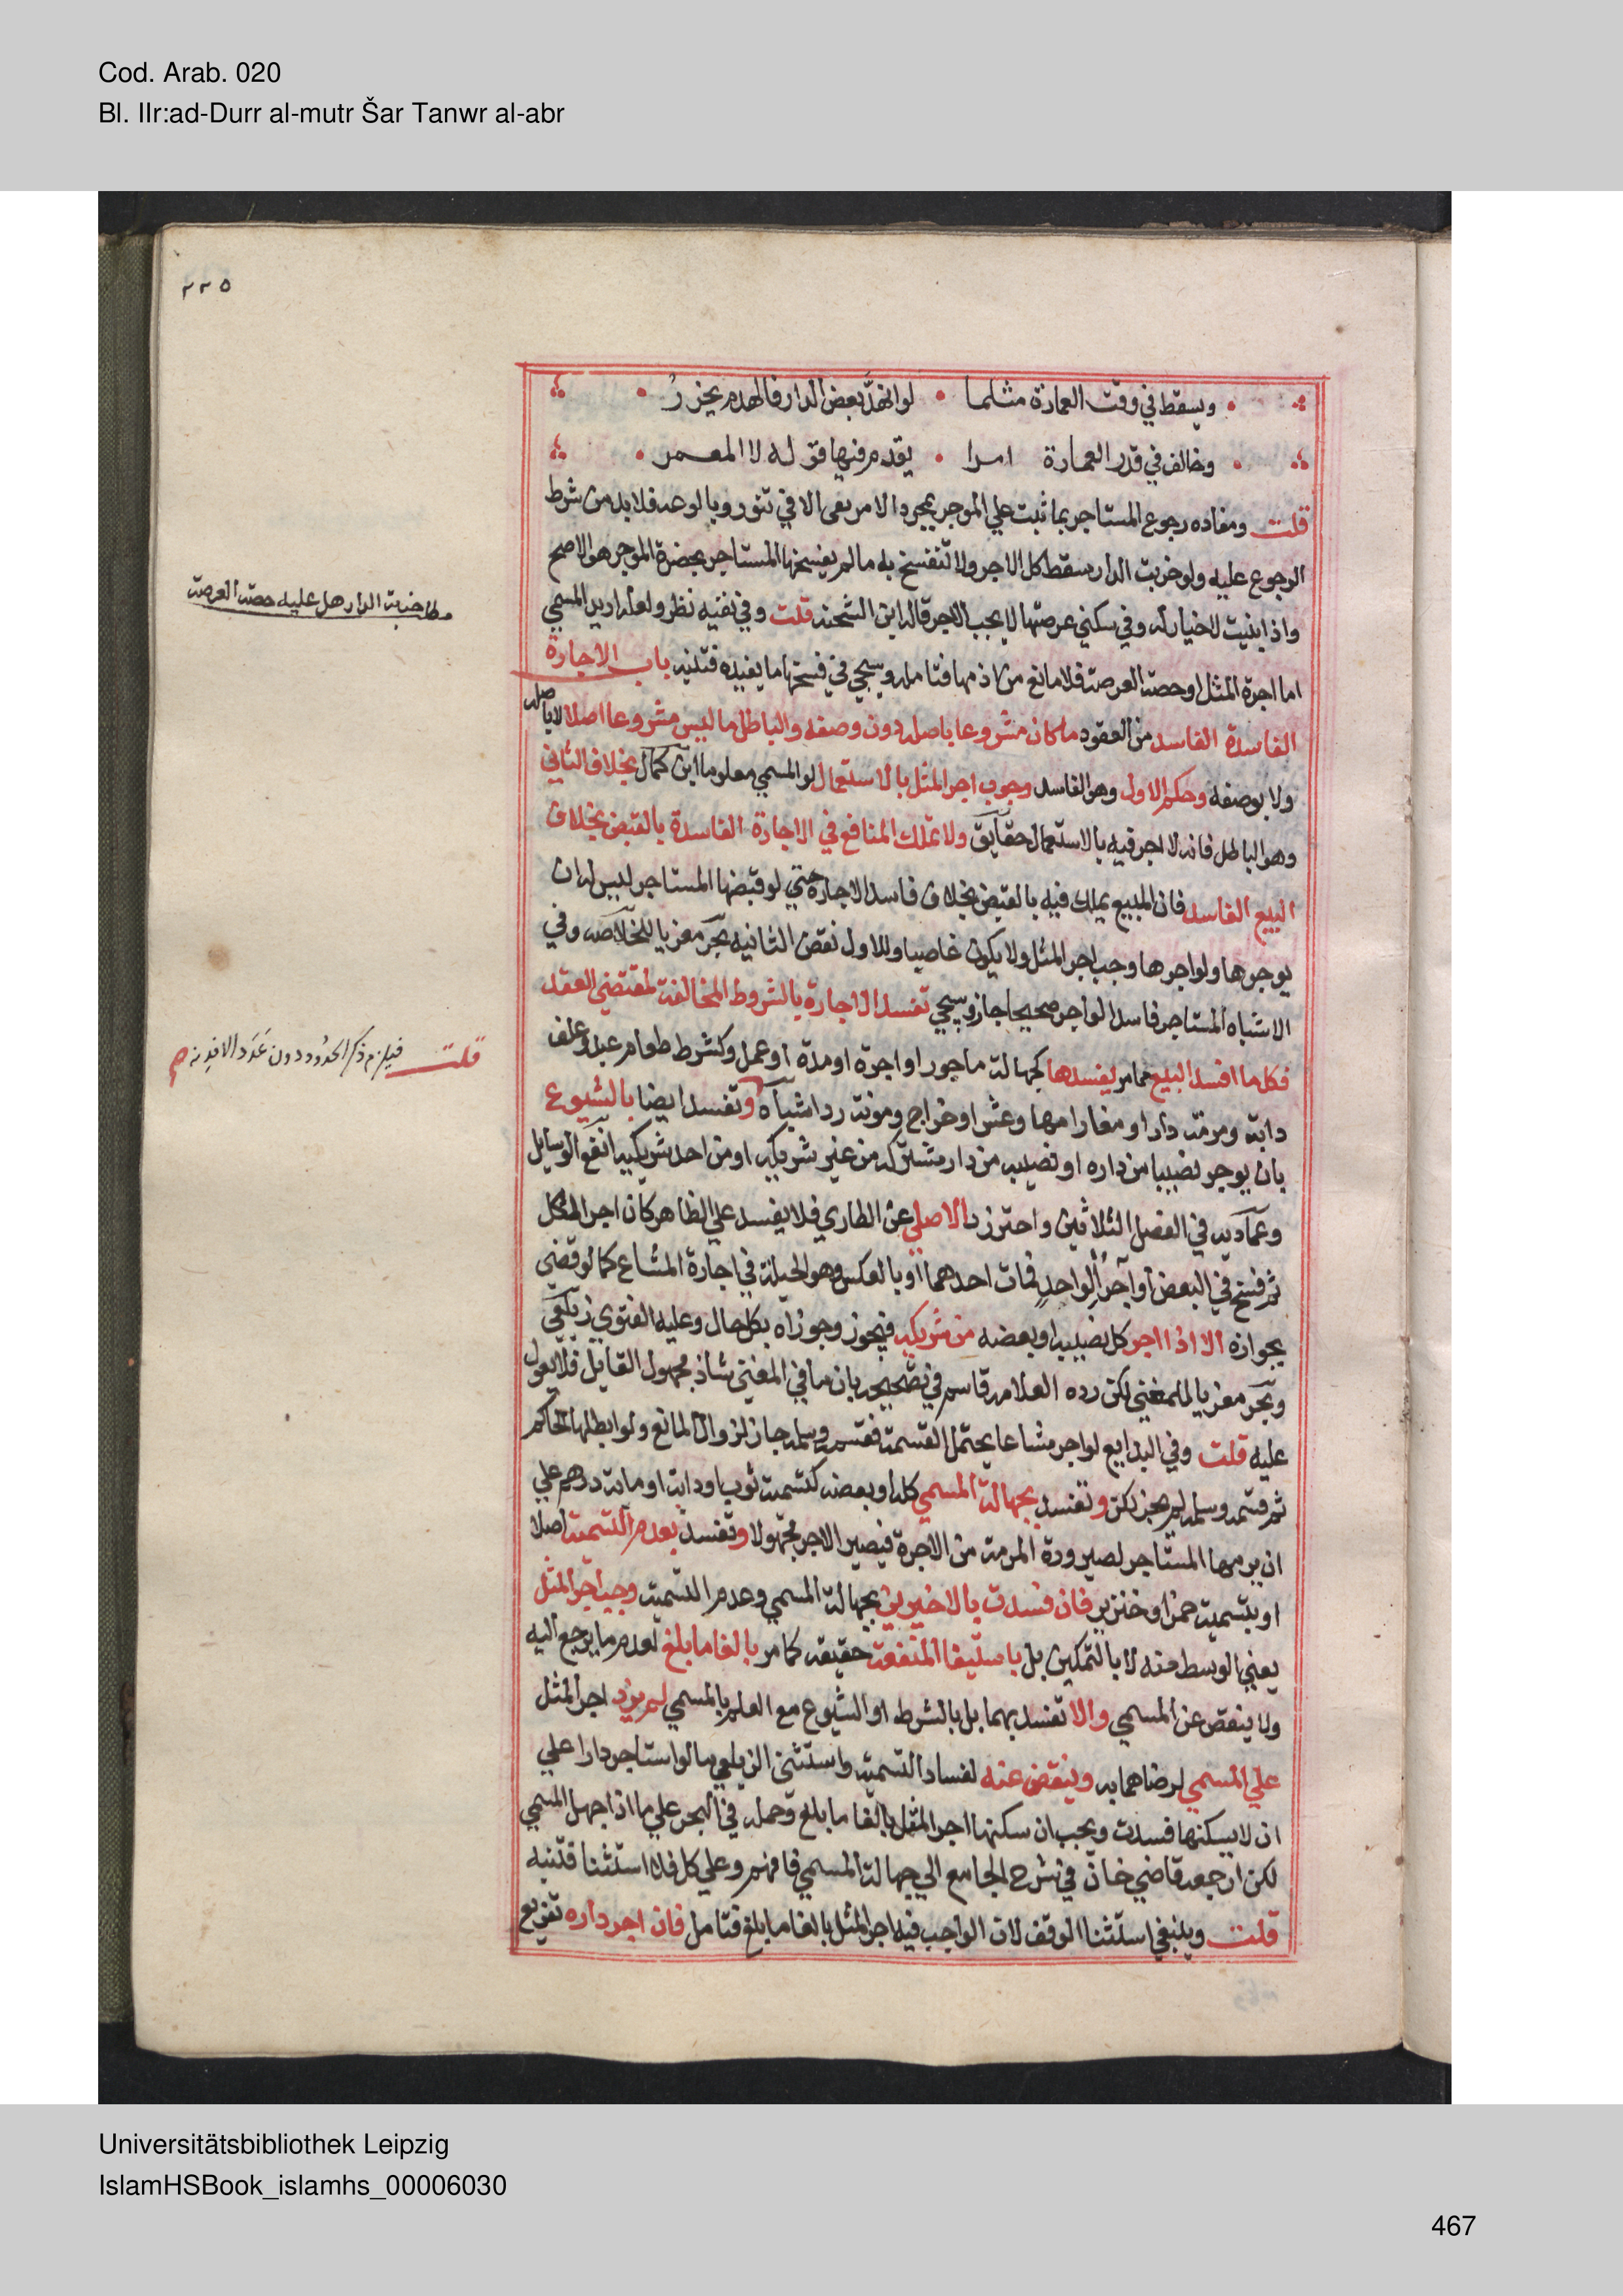 Cod. Arab. 020
Bl. IIr:ad-Durr al-mutr Šar Tanwr al-abr
٢٢٥
ويسقط في وقت العمارة مثلما • لو انهد بعض الدار فالهدم يحزر
وخالف في قدر العمارة امرا • يقدم فيها قوله لا المعمر
قلت ومفاده رجوع المستاجر بما ثبت علي الموجر بمجرد الامر يعني الا في تنور وبالوعه فلا بد من شرط
الرجوع عليه ولو خربت الدار سقط كل الاجر ولا تنفسخ به ما لم يفسخها المستاجر بحضرة الموجر هو الاصح
واذا بنيت لا خيار له وفي سكني عرصتها لا يجب الاجر قاله ابن الشحنه قلت وفي نفيه نظر ولعله اريد المسمي
اما اجرة المثل او حصة العرصة فلا مانع من لزومها فتامله وسيجي في فسخها ما يفيده فتنبه باب الاجارة
الفاسدة الفاسد من العقود ما كان مشروعا باصله دون وصفه والباطل ما ليس مشروعا اصلا لا باصله
ولا بوصفه وحكم الاول وهو الفاسد وجوب اجر المثل بالاستعمال لو المسمي معلوما ابن كمال بخلاف الثاني
وهو الباطل فانه لا اجر فيه بالاستعمال حقايق ولا تملك المنافع في الاجارة الفاسدة بالقبض بخلاف
البيع الفاسد فان المبيع يملك فيه بالقبض بخلاف فاسد الاجارة حتي لو قبضها المستاجر ليس له ان
يوجرها ولو اجرها وجب اجر المثل ولا يكون غاصبا وللاول نقض الثانيه بحر معزيا للخلاصه وفي
الاشباه المستاجر فاسدا لو اجر صحيحا جاز وسيجي تفسد الاجارة بالشروط المخالفة لمقتضي العقد
فكل ما افسد البيع مما مر يفسدها كجهالة ماجور او اجرة او مدة او عمل وكشرط طعام عبد وعلف
دابة ومرمة دار او مغارمها وعشر او خراج ومونة رد اشباه وتفسد ايضا بالشيوع
بان يوجر نصيبا من داره او نصيبه من دار مشتركه من غير شريكه او من احد شريكيه انفع الوسايل
وعماديه في الفصل الثلاثين واحترز بالاصلي عن الطاري فلا يفسد علي الظاهر كان اجر الكل
ثم فسخ في البعض او آجر الواحد فمات احدهما او بالعكس وهو الحيلة في اجارة المشاع كما لو قضي
بجوازه الا اذا اجر كل نصيبه او بعضه من شريكه فيجوز وجوزاه بكل حال وعليه الفتوي زيلعي
وبحر معزيا للمغني لكن رده العلامه قاسم في تصحيحه بان ما في المغني شاذ مجهول القايل فلا يعول
عليه قلت وفي البدايع لو اجر مشاعا يحتمل القسمة فقسم وسلم جاز لزوال المانع ولو ابطلها الحاكم
ثم قسمه وسلم لم يجز لكن وتفسد بجهالة المسمي كله او بعضه كتسمية ثوب او دابة او ماية درهم علي
ان يرمها المستاجر لصيرورة المرمة من الاجرة فيصير الاجر مجهولا وتفسد بعدم التسمية اصلا
او بتسمية خمر او خنزير فان فسدت بالاخيرين بجهالة المسمي وعدم التسمية وجب اجر المثل
يعني الوسط منه لا بالتمكين بل باستيفا المنفعة حقيقة كما مر بالغا ما بلغ لعدم ما يرجع اليه
ولا ينقص عن المسمي والا تفسد بهما بل بالشرط او الشيوع مع العلم بالمسمي لم يزد اجر المثل
علي المسمي لرضاهما به وينقص عنه لفساد التسمية واستثني الزيلعي ما لو استاجر دارا علي
ان لا يسكنها فسدت ويجب ان سكنها اجر المثل بالغا ما بلغ وحمله في البحر علي ما اذا جهل المسمي
لكن ارجعه قاضي خان في شرح الجامع الي جهالة المسمي فافهم وعلي كل فلا استثنا فتنبه
قلت وينبغي استثنا الوقف لان الواجب فيه اجر المثل بالغا ما بلغ فتامل فان اجر داره تفريع
مط خربت الدار هل عليه حصة العرصة
قلت فيلزم ذكر الحدود دون عدد الافدنه
Universitätsbibliothek Leipzig
IslamHSBook_islamhs_00006030
467